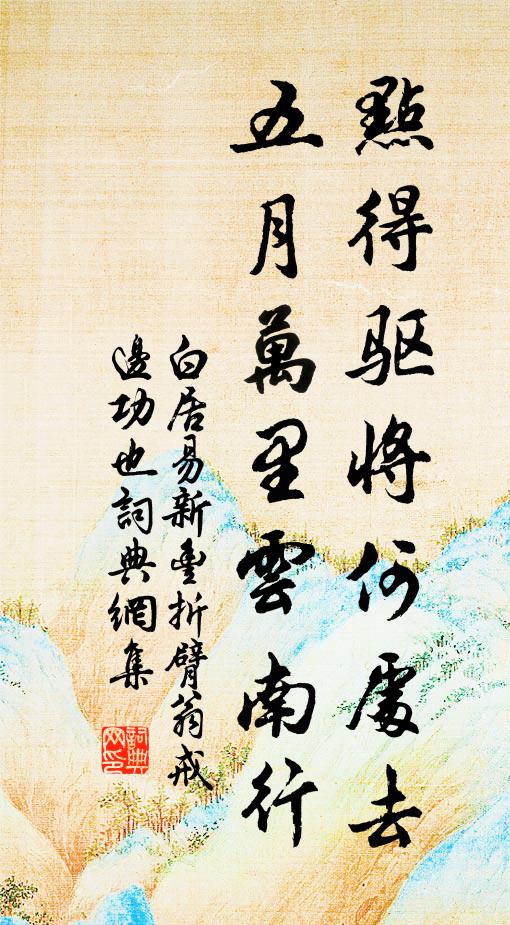 點得驱將何處去
五月萬里雲南行
白居易新豐折臂翁戒
邊功也詞典網集
詞典
网印